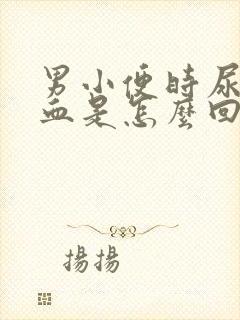 男小便時尿
血是怎麼回
揚揚